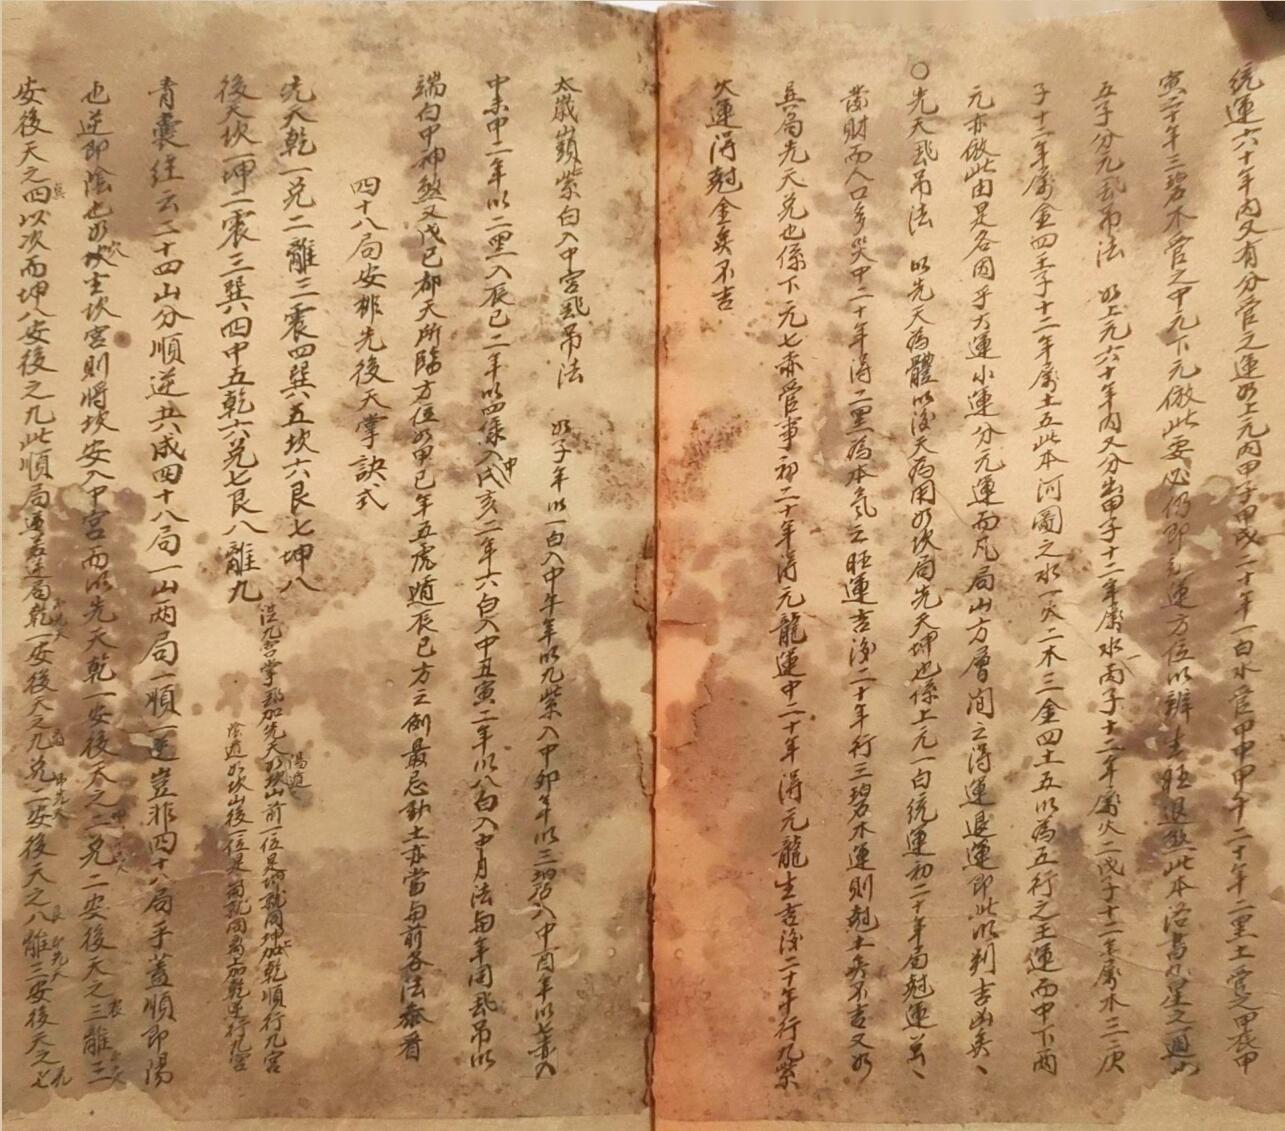 統運六十年內又有分管之運如上元內甲子甲戌二十年一白水管甲申甲午二十年二黑土管之甲辰甲
寅二十年三碧木管之中元下元倣此要必仍即元運方位以辨生旺退煞此本洛書九星之
五子分元飛吊法 如上元六十年內又分出甲子十二年屬水丙子十二年屬火二戊子十二年屬木三庚
子十二年屬金四壬子十二年屬土五此本河圖之水一火二木三金四土五以為五行之王運而中下兩
元亦倣此由是各因乎大運小運分元運而凡局山方層間之得運退運即此以判吉凶矣
○先天飛吊法 以先天為體以後天為用如坎局先天坤也係上元一白統運初二十年為尅運
發財而人口多災中二十年得二黑為本氣之旺運吉後二十年行三碧木運則尅土矣不吉又如
兌局先天兌也係下元七赤管事初二十年得元龍運中二十年得元龍生吉後二十年行九紫
火運得尅金矣不吉
太歲嶺紫白入中宮飛吊法 如子年以一白入中午年以九紫入中卯年以三碧入中酉年以七赤入
中未申二年以二黑入辰巳二年以四綠入中戌亥二年六白入中丑寅二年以八白入中月法與年同飛吊以
端白中神煞又戊己都天所臨方位如甲己年五虎遁辰巳方之例最忌動土亦當與前各法叅看
四十八局安排先後天掌訣式
先天乾一兌二離三震四巽五坎六艮七坤八
後天坎一坤二震三巽四中五乾六兌七艮八離九
陽遁
青囊經云二十四山分順逆共成四十八局一山兩局一順一逆豈非四十八局乎蓋順即陽
也逆即陰也如坎主坎宮則將坎安入中宮而以先天乾一安後天之二兌二安後天之三離三
安後天之四以次而坤八安後之九此順局逆局乾一安後天之九兌二安後天之八離三安後天之七